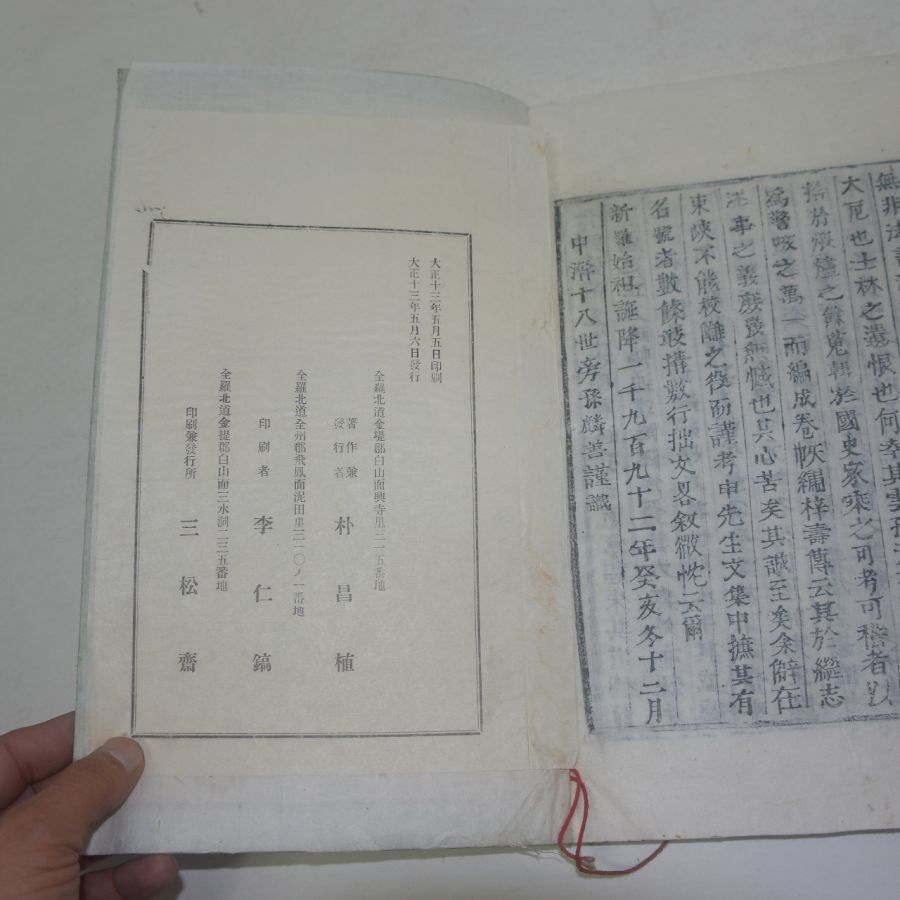 無非法
大厄也士林之遺恨也何幸其雲孫
捨於殷爐之餘蒐輯於國史家乘之可考可稽者以
爲警咳之萬一而編成卷帙繡梓壽傳云其於繼志
述事之義庶幾無憾也其心苦矣其誠至矣余僻在
東峽不能校讎之役而謹考申先生文集中摭其有
名號者數條敢搆數行拙文畧敘微忱云爾
新羅始祖誕降一千九百九十二年癸亥冬十二月
中濟十八世旁孫麟善謹識
大正十三年五月五日印刷
大正十三年五月六日發行
全羅北道金堤郡白山面興寺里三一五番地
著作兼發行者 朴昌植
全羅北道全州郡飛鳳面泥田里三一〇ノ一番地
印刷者 李仁鎬
全羅北道金提郡白山面三水洞二三五番地
印刷兼發行所 三松齋